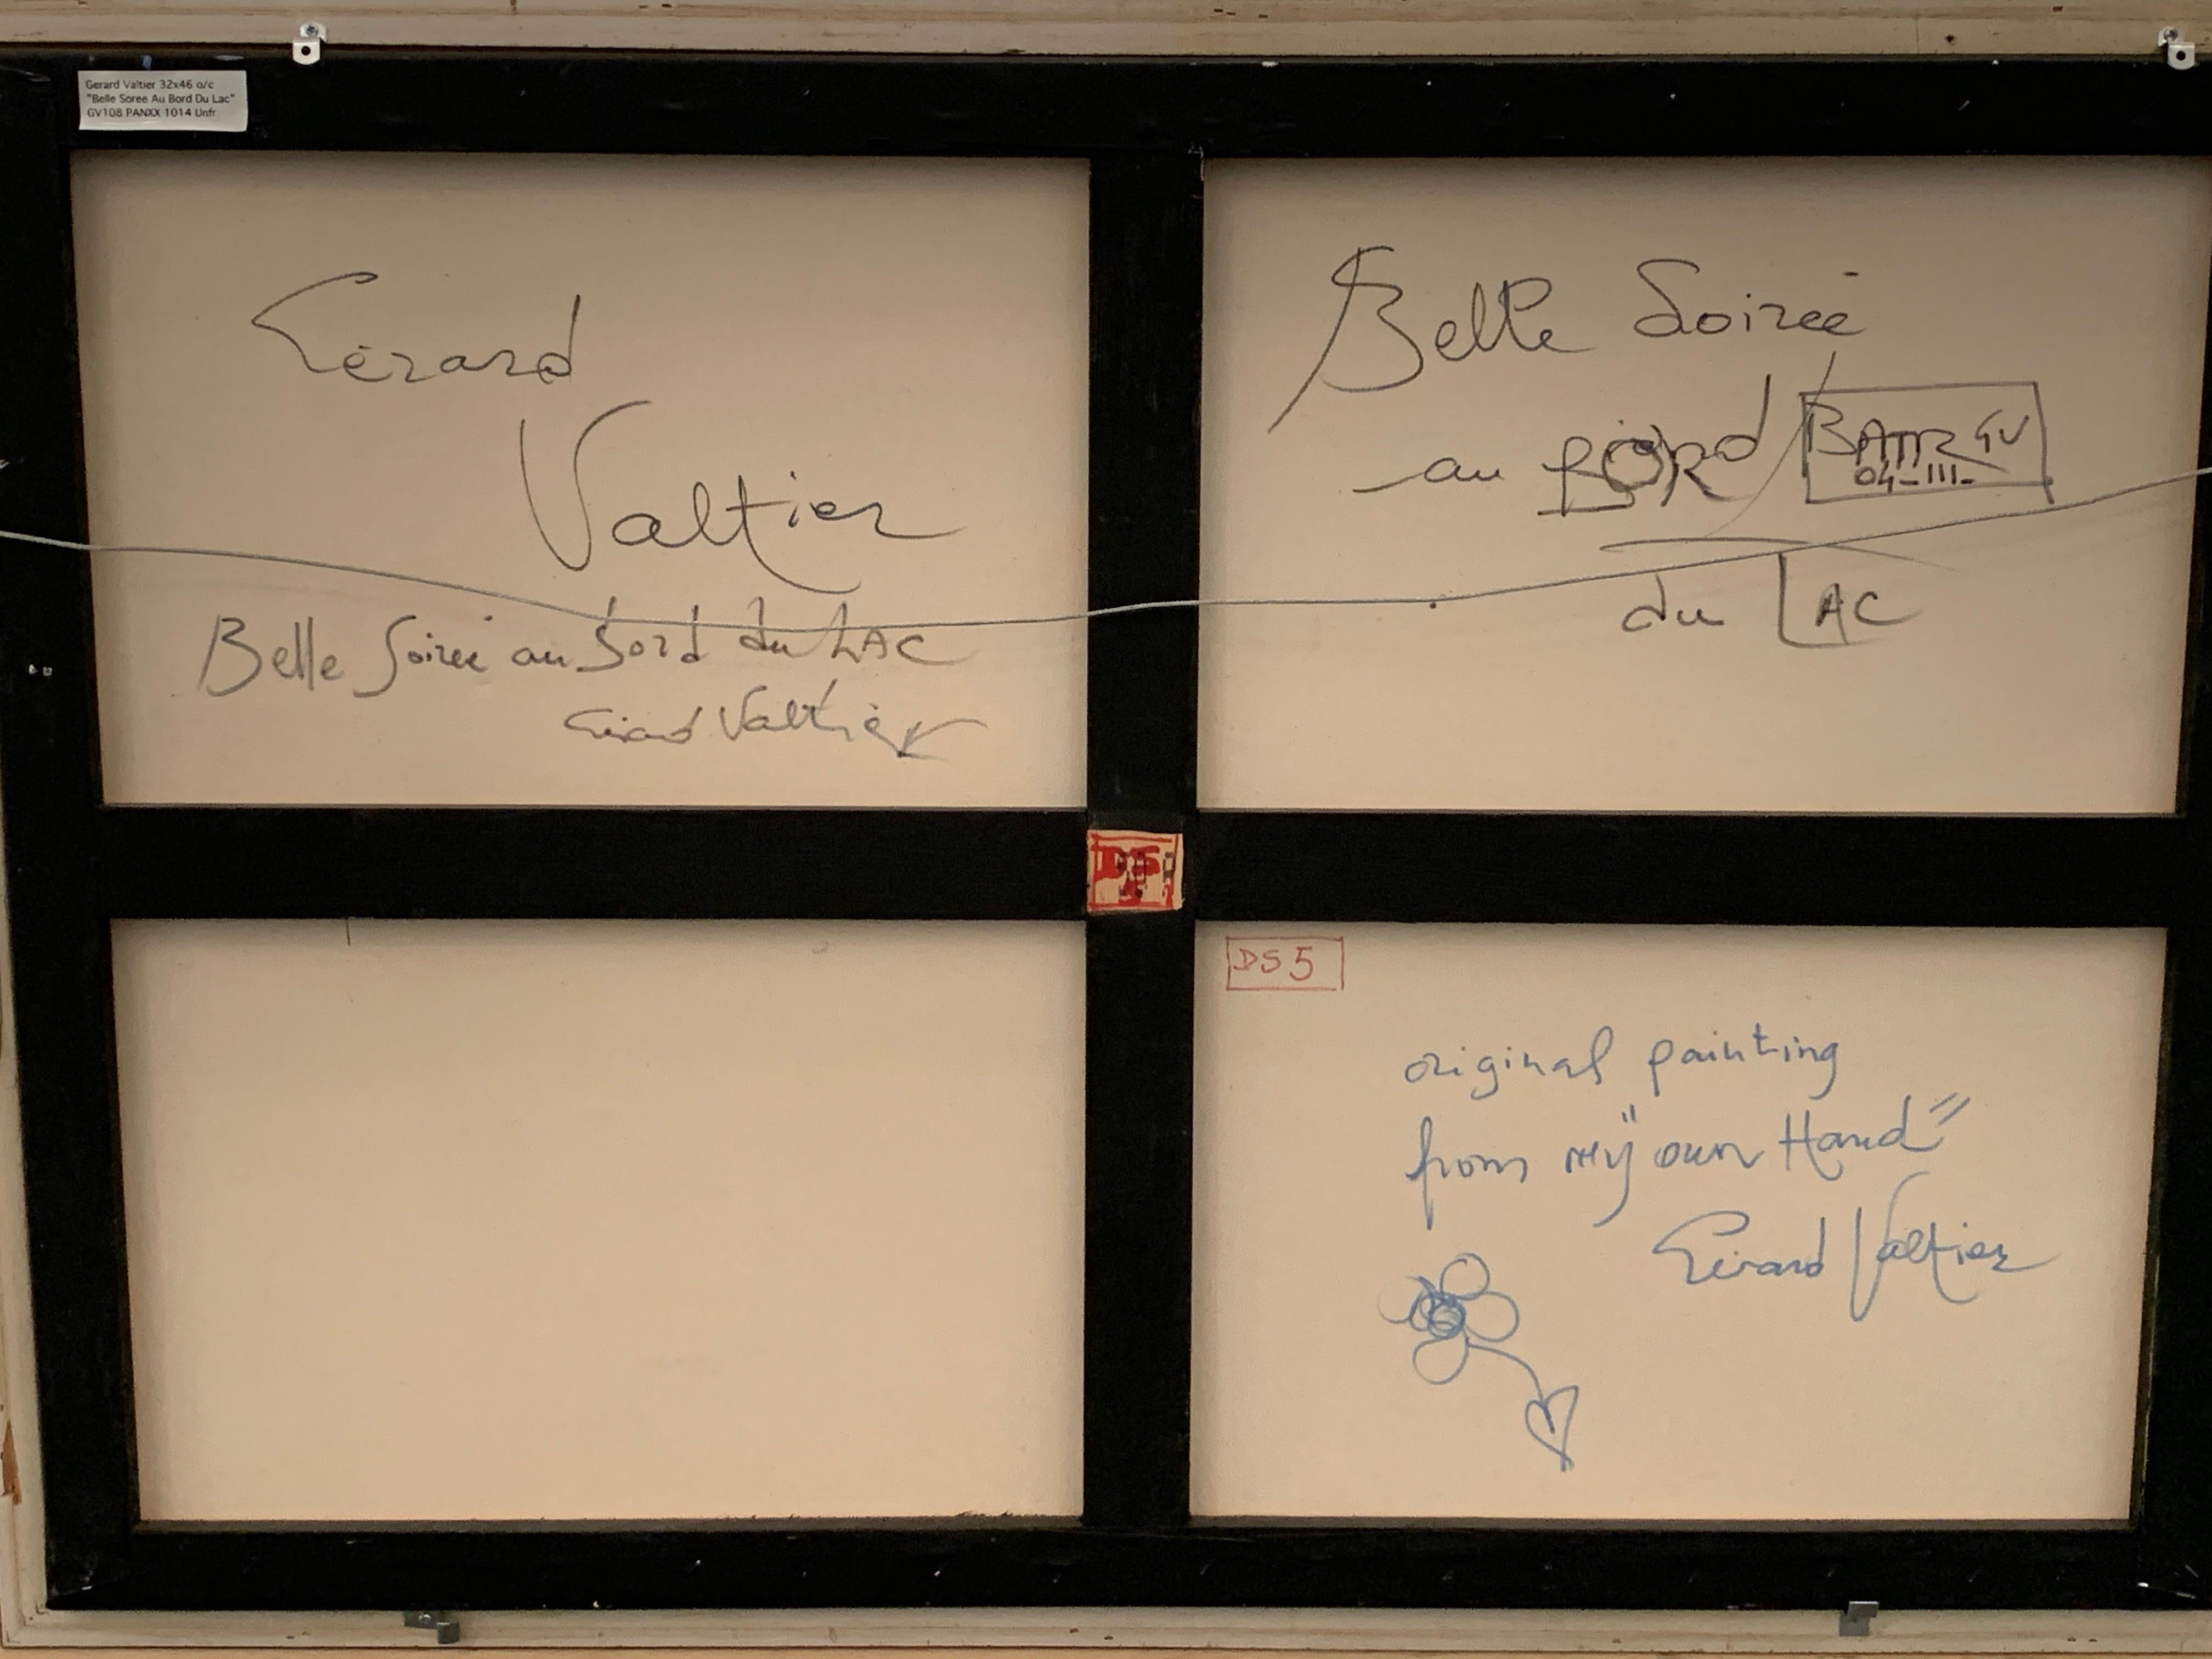 Gerard Valtier 32x46 o/c
"Belle Soree Au Bord Du Lac"
GV108 PANXX 1014 Unfr
Gérard
Valtier
Belle Soirée au bord du LAC
Gérard Valtier
Belle Soirée
au Bord
GV
04-III-
du LAC
DS5
original painting
from my "own Hand"
Gérard Valtier